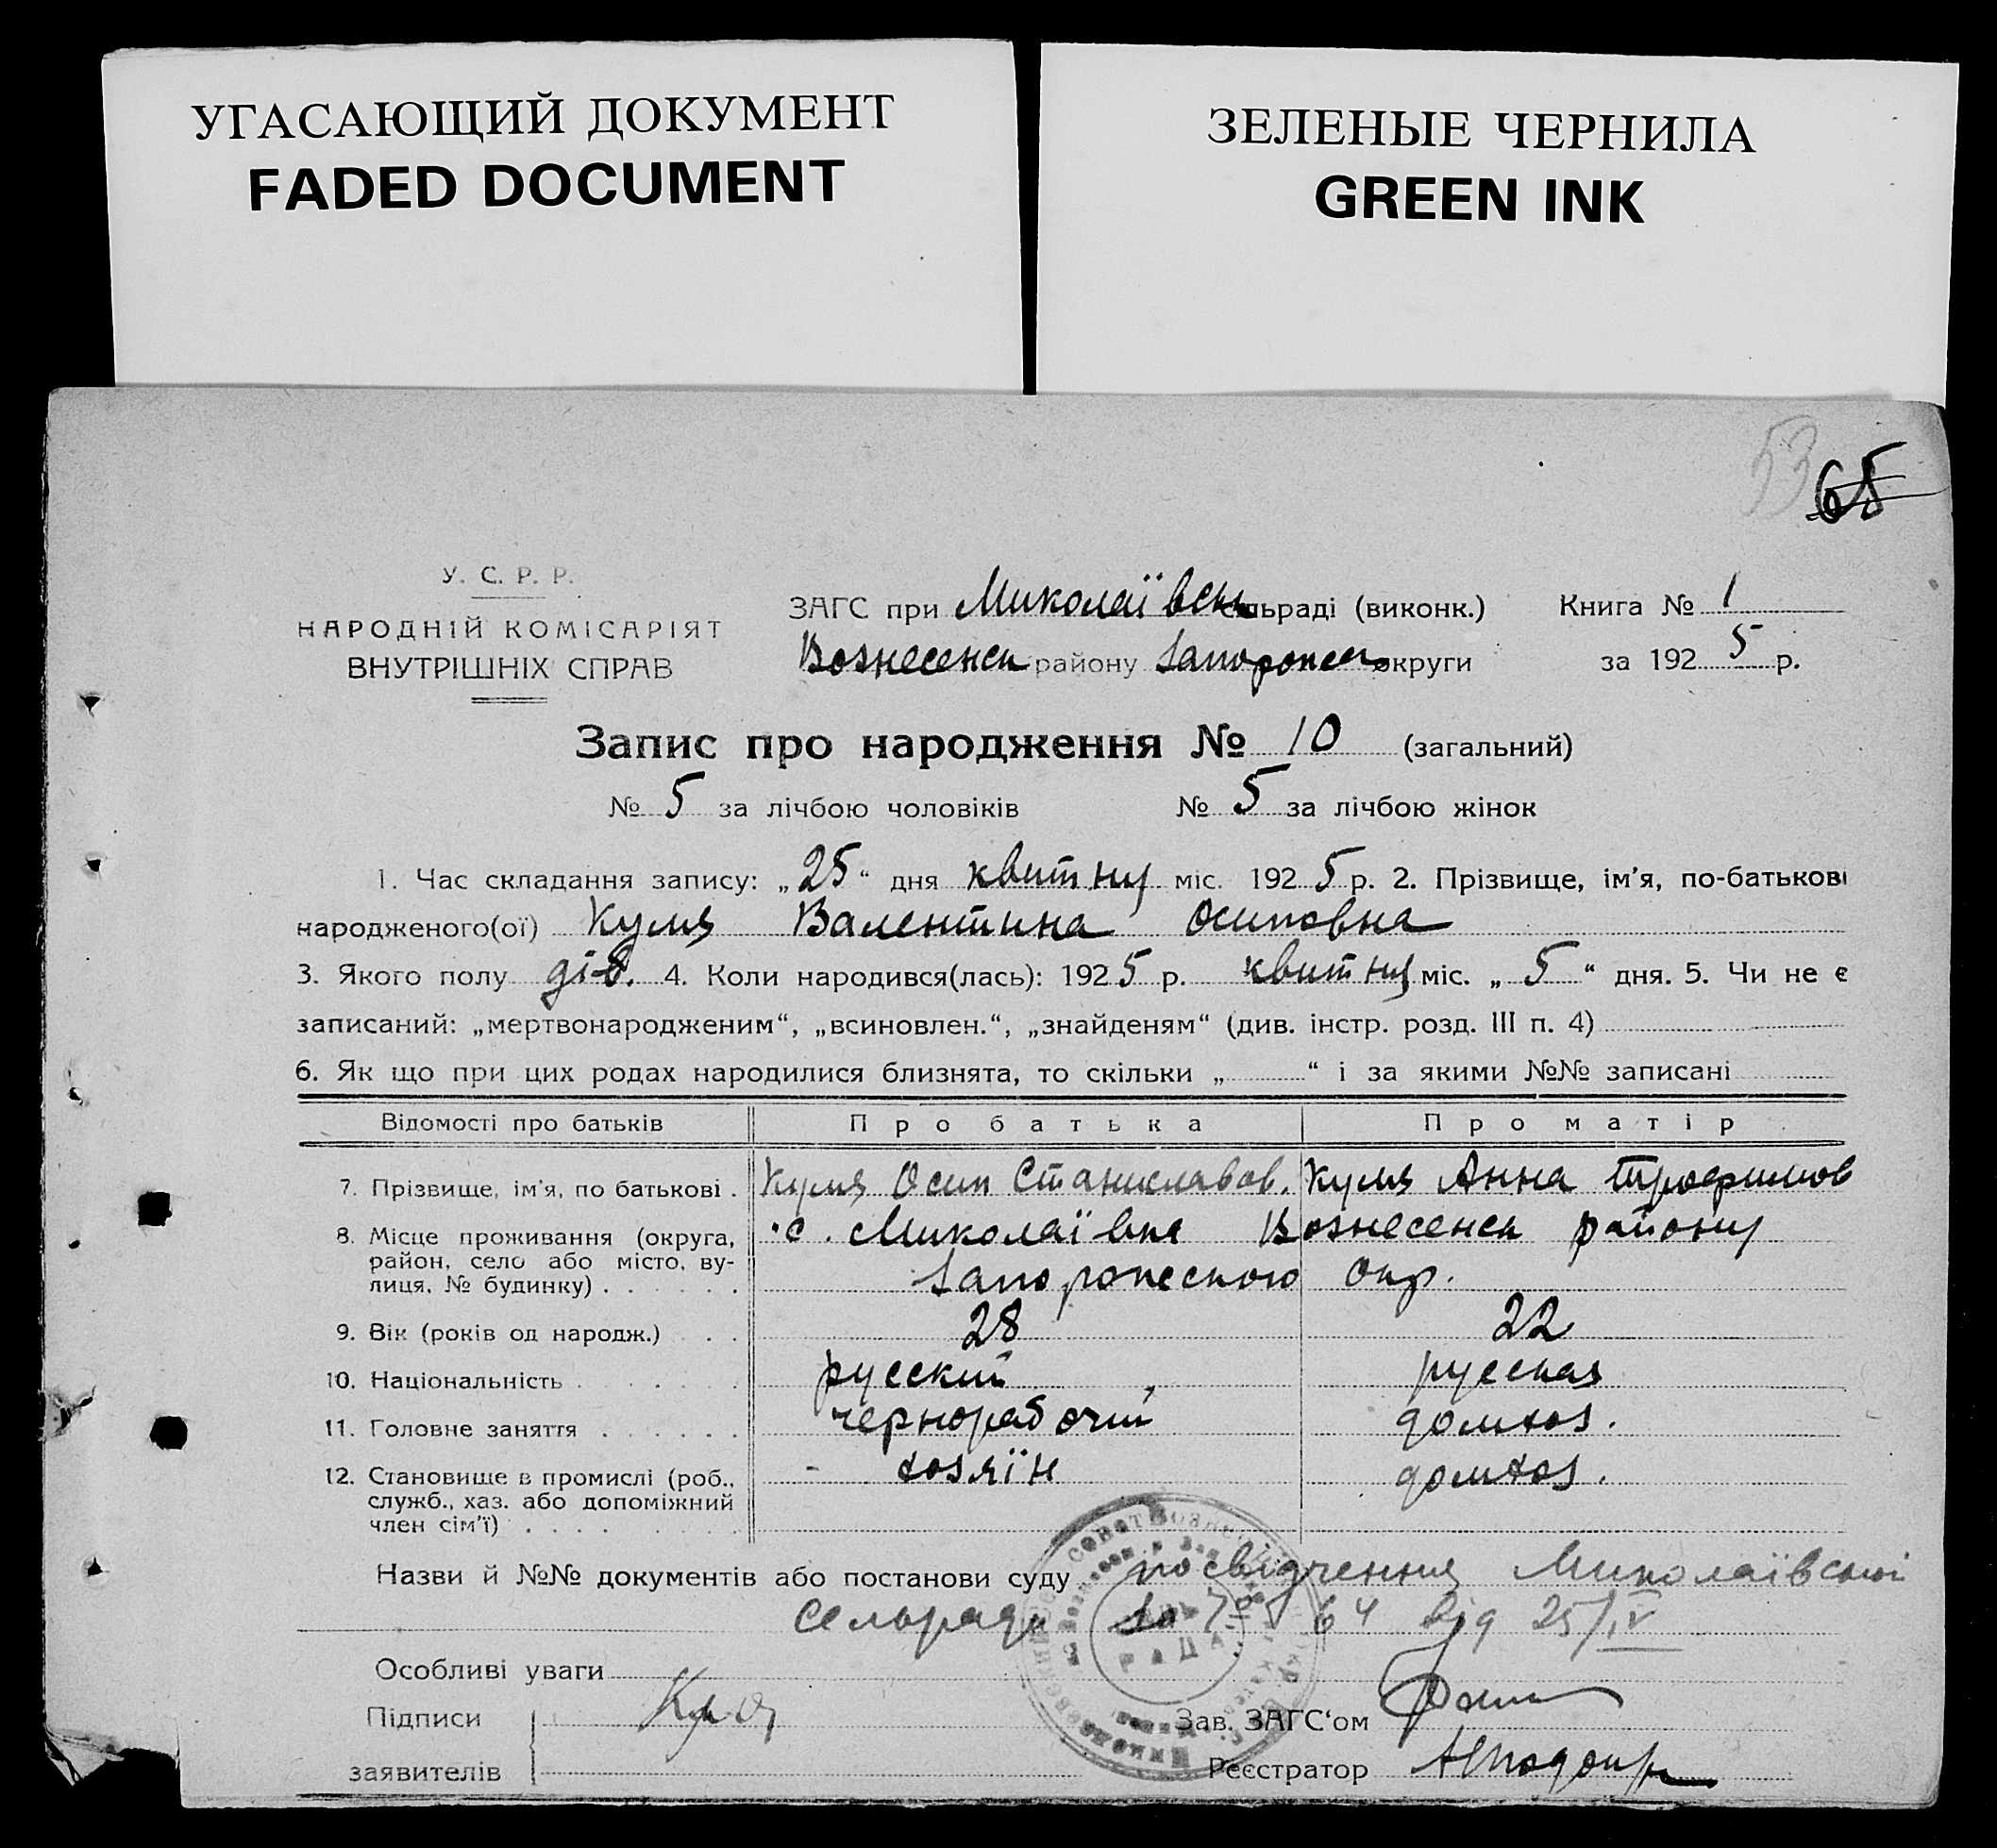 УГАСАЮЩИЙ ДОКУМЕНТ
FADED DOCUMENT
ЗЕЛЕНЫЕ ЧЕРНИЛА
GREEN INK
53 65
У. С. Р. Р.
НАРОДНІЙ КОМІСАРІЯТ
ВНУТРІШНІХ СПРАВ
ЗАГС при Миколаївськ сільраді (виконк.) Книга № 1
Вознесенськ району Запорожськ округи за 192 5 р.
Запис про народження № 10 (загальний)
№ 5 за лічбою чоловіків № 5 за лічбою жінок
1. Час складання запису: „25“ дня квитня міс. 192 5 р. 2. Прізвище, ім’я, по-батькові
народженого(ої) Куля Валентина Осиповна
3. Якого полу дів. 4. Коли народився(лась): 192 5 р. квитня міс. „5“ дня. 5. Чи не є
записаний: „мертвонародженим“, „всиновлен.“, „знайденям“ (див. інстр. розд. III п. 4)
6. Як що при цих родах народилися близнята, то скільки „ “ і за якими №№ записані
Відомості про батьків Про батька Про матір
7. Прізвище, ім’я, по батькові . Куля Осип Станиславов. Куля Анна Трофимов
8. Місце проживання (округа, район, село або місто, вулиця, № будинку) с. Миколаївка Вознесенск району
Запорожского окр.
9. Вік (років од народж.) 28 22
10. Національність русский русская
11. Головне заняття чернорабочий домхоз.
12. Становище в промислі (роб., служб., хаз. або допоміжний член сім’ї) - хозяїн домхоз.
Назви й №№ документів або постанови суду посвідчення Миколаївської
Сельради за № 64 від 25/IV
РАДА
Особливі уваги
Підписи
заявителів
Зав. ЗАГС‘ом
Реєстратор